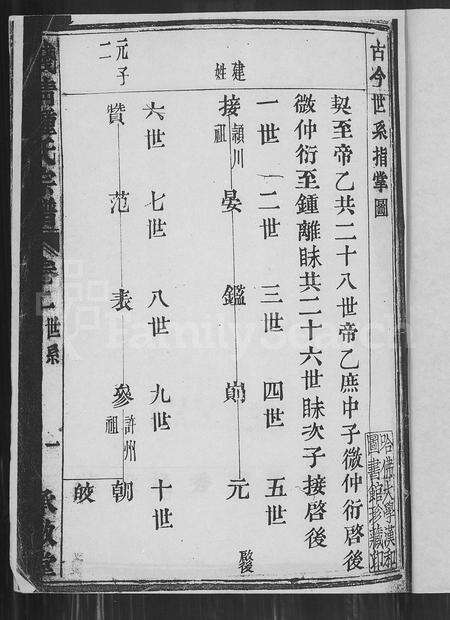 古今世系指掌圖
契至帝乙共二十八世帝乙庶中子微仲衍啓後
微仲衍至鍾離眜共二十六世眜次子接啓後
一世 二世 三世 四世 五世
建姓 接 穎川祖 晏 鑑 元 髮
六世 七世 八世 九世 十世
元子二 贊 范 表 參 許州祖 朝
皎
鍾氏宗譜 卷之一 世系 一
哈佛大學漢和圖書館珍藏印
FamilySearch